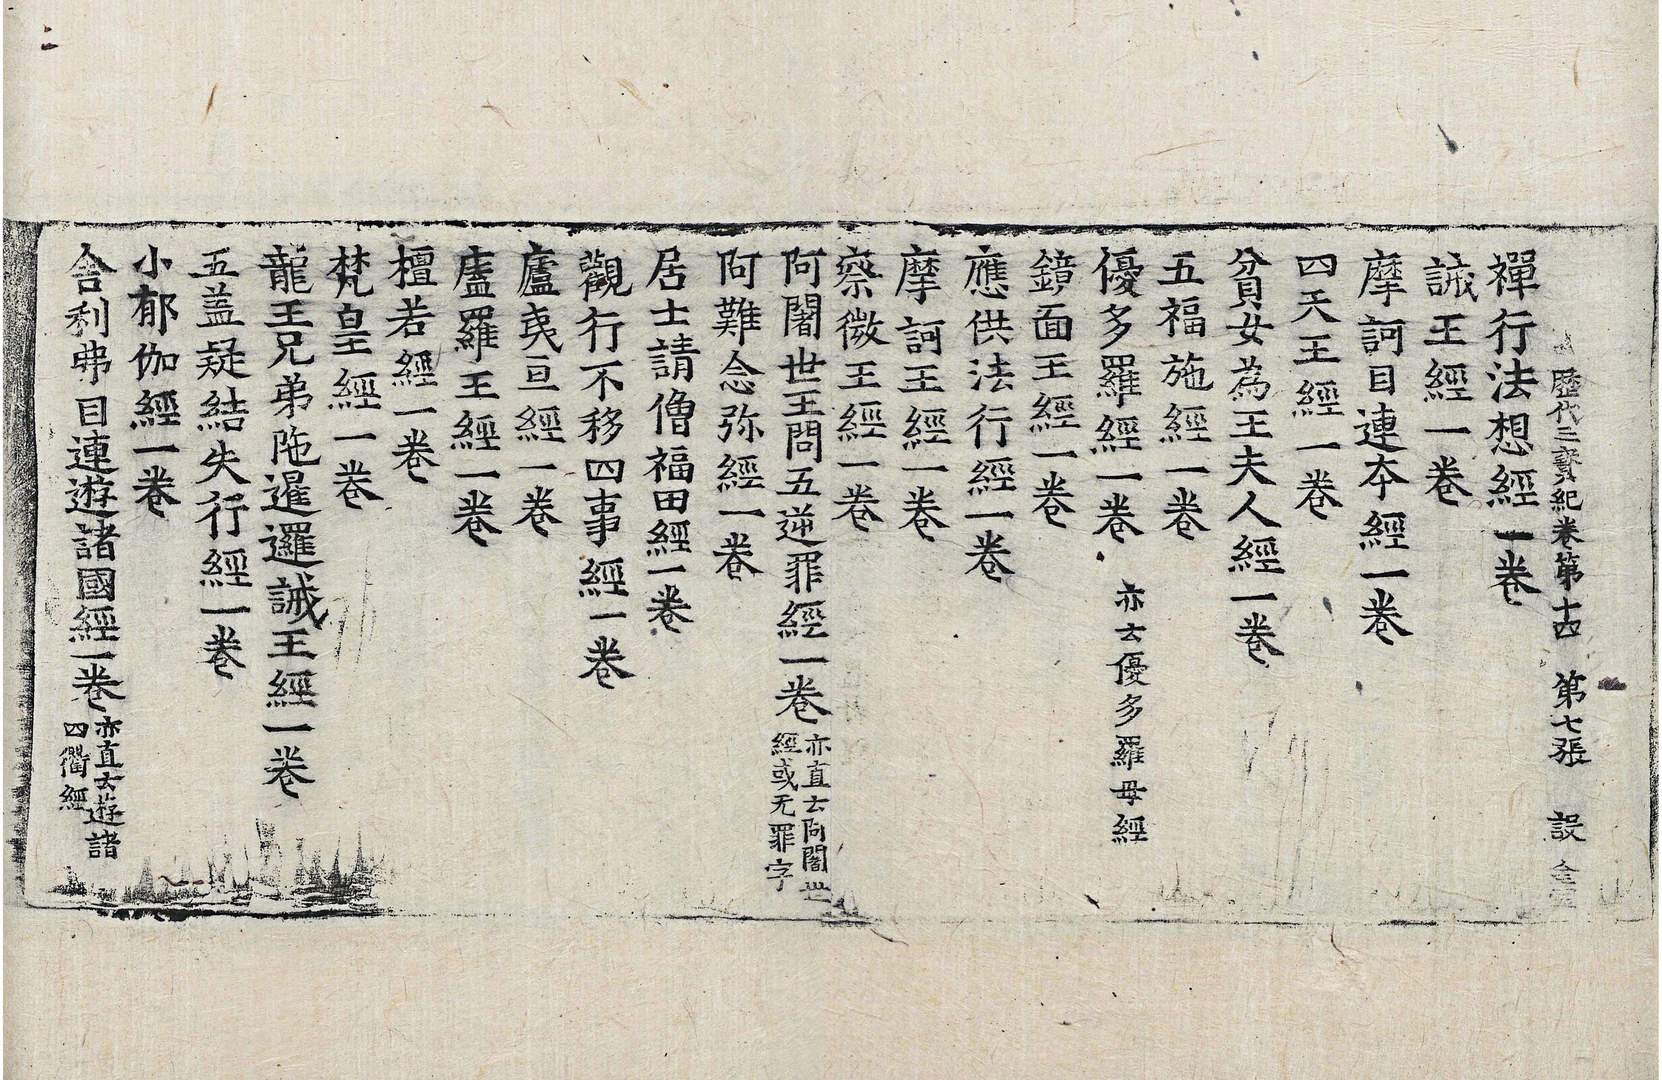 歷代三寶紀卷第十四　第七張　設
禪行法想經一卷
誡王經一卷
摩訶目連本經一卷
四天王經一卷
貧女為王夫人經一卷
五福施經一卷
優多羅經一卷　亦云優多羅母經
鏡面王經一卷
應供法行經一卷
摩訶王經一卷
察微王經一卷
阿闍世王問五逆罪經一卷　亦直云阿闍世
經或无罪字
阿難念弥經一卷
居士請僧福田經一卷
觀行不移四事經一卷
廬夷亘經一卷
盧羅王經一卷
檀若經一卷
梵皇經一卷
龍王兄弟陁暹邏誡王經一卷
五盖疑結失行經一卷
小郁伽經一卷
舍利弗目連遊諸國經一卷　亦直云遊諸
四衢經